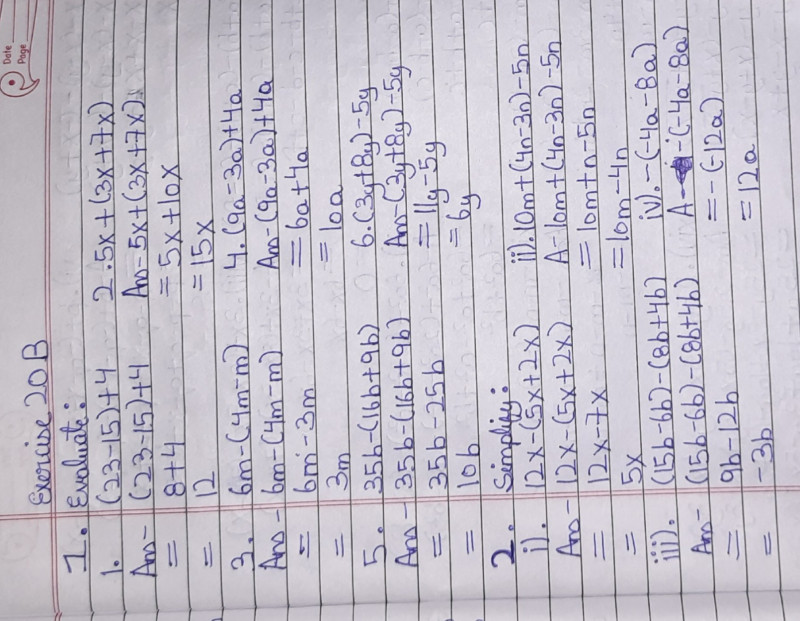 Date
Page
Exercise 20B
1. Evaluate:
1. (23-15)+4
Ans- (23-15)+4
= 8+4
= 12
2. 5x+(3x+7x)
Ans- 5x+(3x+7x)
= 5x+10x
= 15x
3. 6m-(4m-m)
Ans- 6m-(4m-m)
= 6m-3m
= 3m
4. (9a-3a)+4a
Ans- (9a-3a)+4a
= 6a+4a
= 10a
5. 35b-(16b+9b)
Ans- 35b-(16b+9b)
= 35b-25b
= 10b
6. (3y+8y)-5y
Ans- (3y+8y)-5y
= 11y-5y
= 6y
2. Simplify:
i). 12x-(5x+2x)
Ans- 12x-(5x+2x)
= 12x-7x
= 5x
ii). 10m+(4n-3n)-5n
A- 10m+(4n-3n)-5n
= 10m+n-5n
= 10m-4n
iii). (15b-6b)-(8b+4b)
Ans- (15b-6b)-(8b+4b)
= 9b-12b
= -3b
iv). -(-4a-8a)
A- -(-4a-8a)
= -(-12a)
= 12a